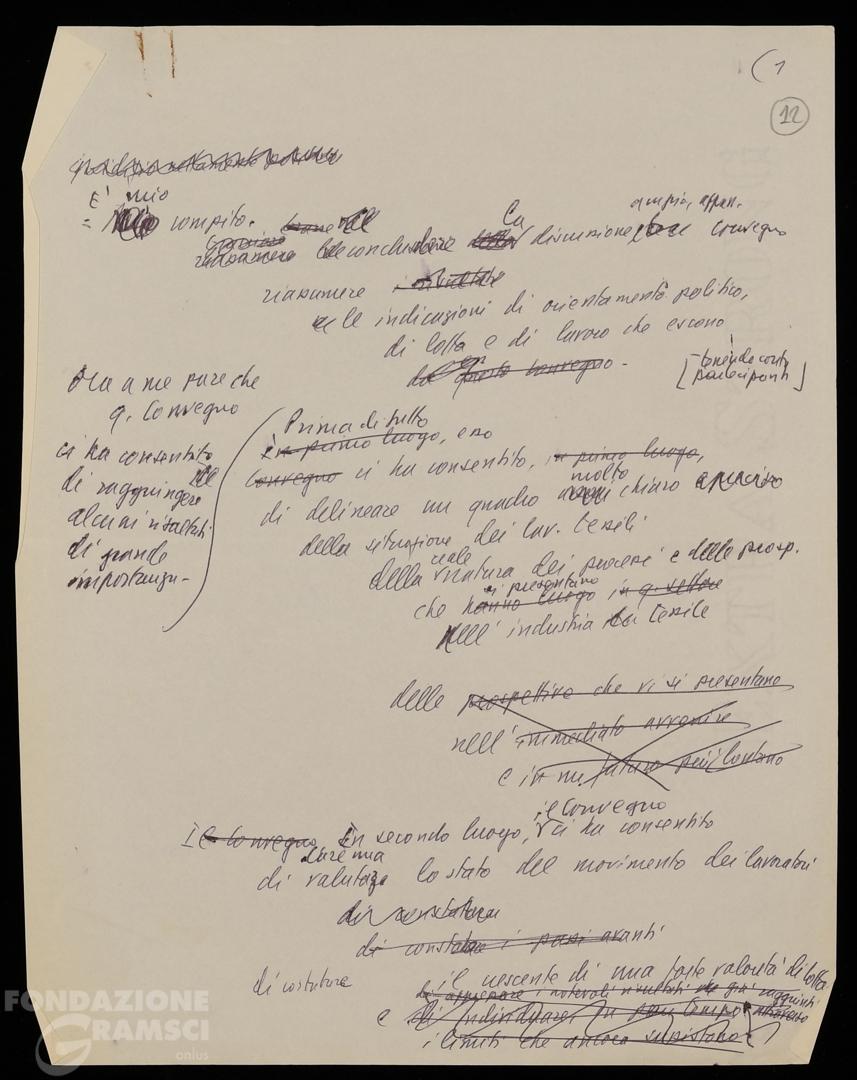 ( 1
12
È mio
= compito.
La
ampia, appas.
riassumere e concludere discussione convegno
riassumere
e le indicazioni di orientamento politico,
di lotta e di lavoro che escono
da questo convegno -
[tenendo conto
partecipanti]
Ora a me pare che
q. Convegno
ci ha consentito
di raggiungere
alcuni risultati
di grande
importanza -
Prima di tutto
in primo luogo, esso
Convegno ci ha consentito, in primo luogo,
molto
di delineare un quadro assai chiaro e preciso
della situazione dei lav. tessili
reale
della natura dei processi e delle prosp.
si presentano
che hanno luogo in q. settore
nell'industria tessile
delle prospettive che vi si presentano
nell'immediato avvenire
e in un futuro più lontano
il Convegno
Il Convegno In secondo luogo, ci ha consentito
dare una
di valutaz. lo stato del movimento dei lavoratori
di constatare
di constatare i passi avanti
di costatare il crescente di una forte volontà di lotta
di apprezzare i notevoli risultati già raggiunti
e di individuare in pari tempo attraverso
i limiti che ancora sussistono
FONDAZIONE
GRAMSCI
onlus